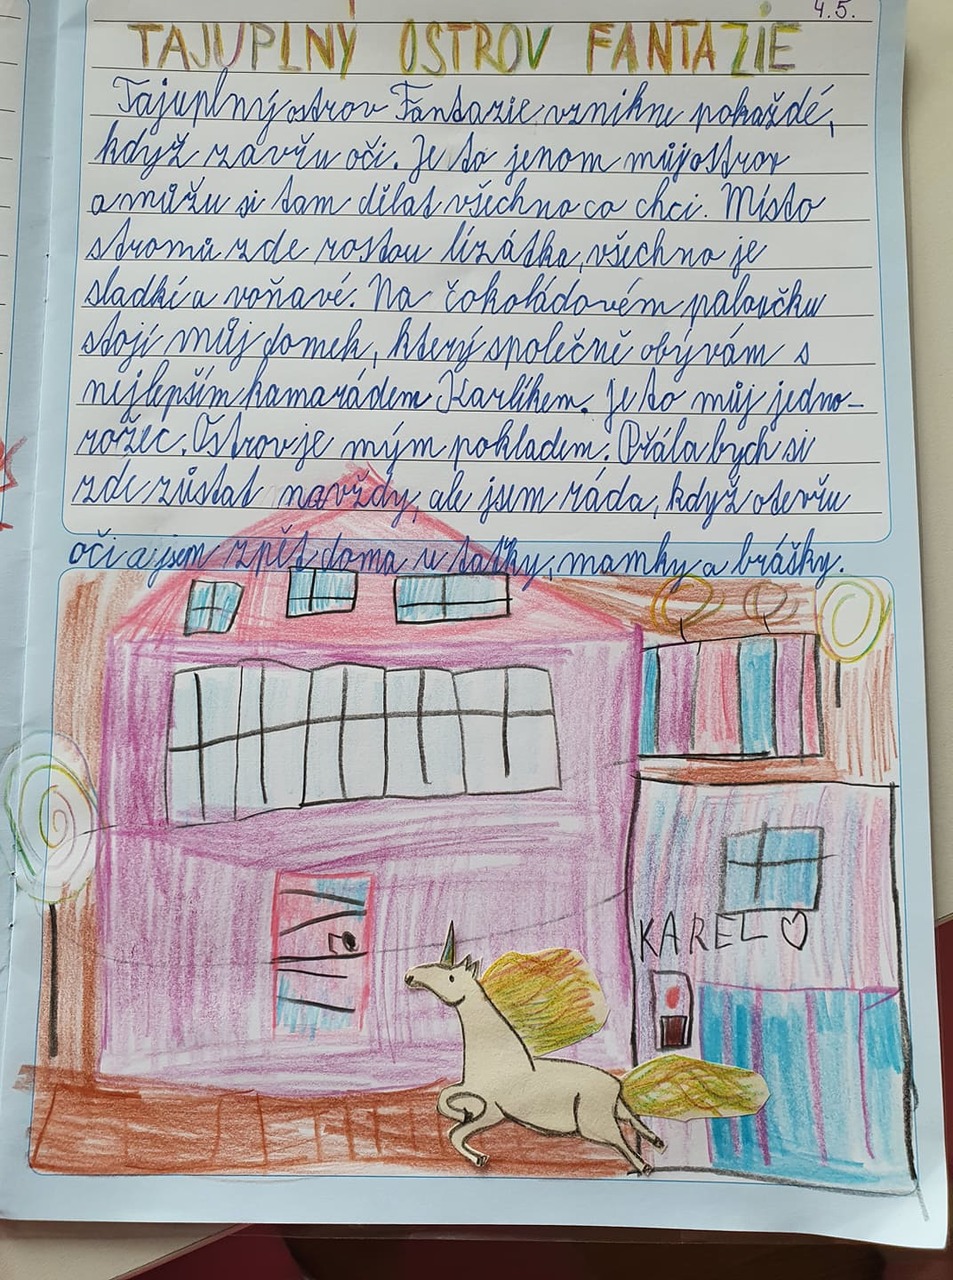 4.5.
TAJUPLNÝ OSTROV FANTAZIE
Tajuplný ostrov Fantazie vznikne pokaždé,
když zavřu oči. Je to jenom můj ostrov
a můžu si tam dělat všechno co chci. Místo
stromů zde rostou lízátka, všechno je
sladké a voňavé. Na čokoládovém paloučku
stojí můj domek, který společně obývám s
nejlepším kamarádem Karlíkem. Je to můj jedno-
rožec. Ostrov je mým pokladem. Přála bych si
zde zůstat navždy, ale jsem ráda, když otevřu
oči a jsem zpět doma u taťky, mamky a brášky.
KAREL